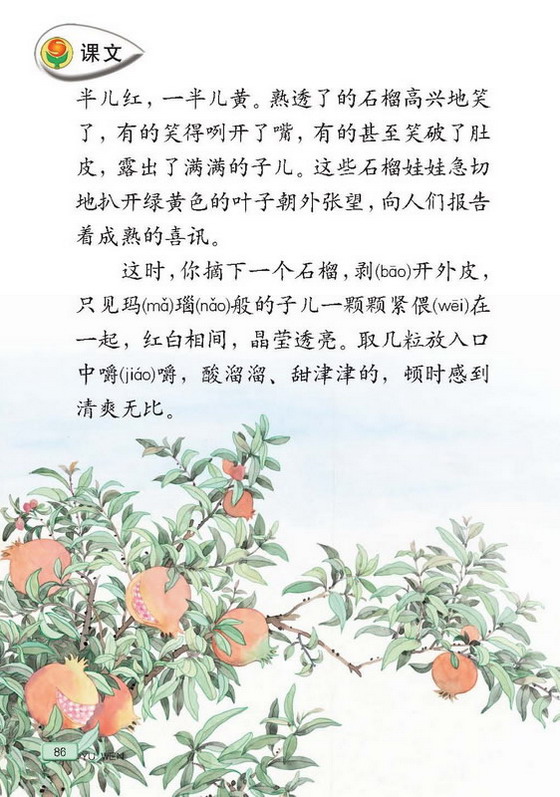 课文
半儿红，一半儿黄。熟透了的石榴高兴地笑
了，有的笑得咧开了嘴，有的甚至笑破了肚
皮，露出了满满的子儿。这些石榴娃娃急切
地扒开绿黄色的叶子朝外张望，向人们报告
着成熟的喜讯。
这时，你摘下一个石榴，剥(bāo)开外皮，
只见玛(mǎ)瑙(nǎo)般的子儿一颗颗紧偎(wēi)在
一起，红白相间，晶莹透亮。取几粒放入口
中嚼(jiáo)嚼，酸溜溜、甜津津的，顿时感到
清爽无比。
86
YU WEN